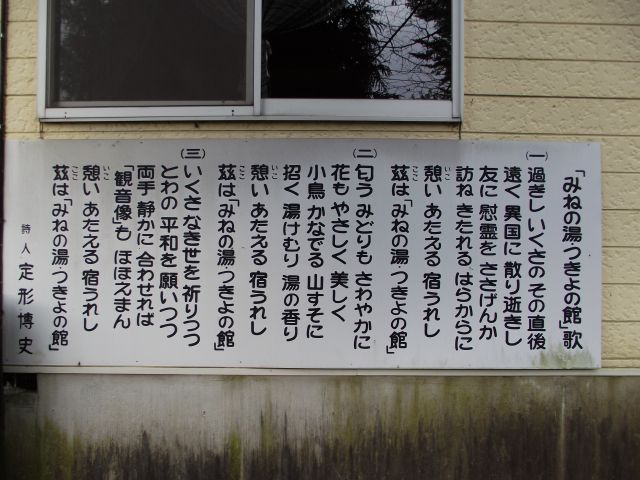 「みねの湯つきよの館」歌
(一)過ぎし いくさの その直後
遠く 異国に 散り逝きし
友に 慰霊を ささげんか
訪ね きたれる はらからに
憩い あたえる 宿うれし
玆は「みねの湯・つきよの館」
(二)匂う みどりも さわやかに
花も やさしく 美しく
小鳥 かなでる 山すそに
招く 湯けむり 湯の香り
憩い あたえる 宿うれし
玆は「みねの湯・つきよの館」
(三)いくさ なき世を 祈りつつ
とわの 平和を 願いつつ
両手 静かに 合わせれば
「観音像」も ほほえまん
憩い あたえる 宿うれし
玆は「みねの湯・つきよの館」
詩人 定形博史